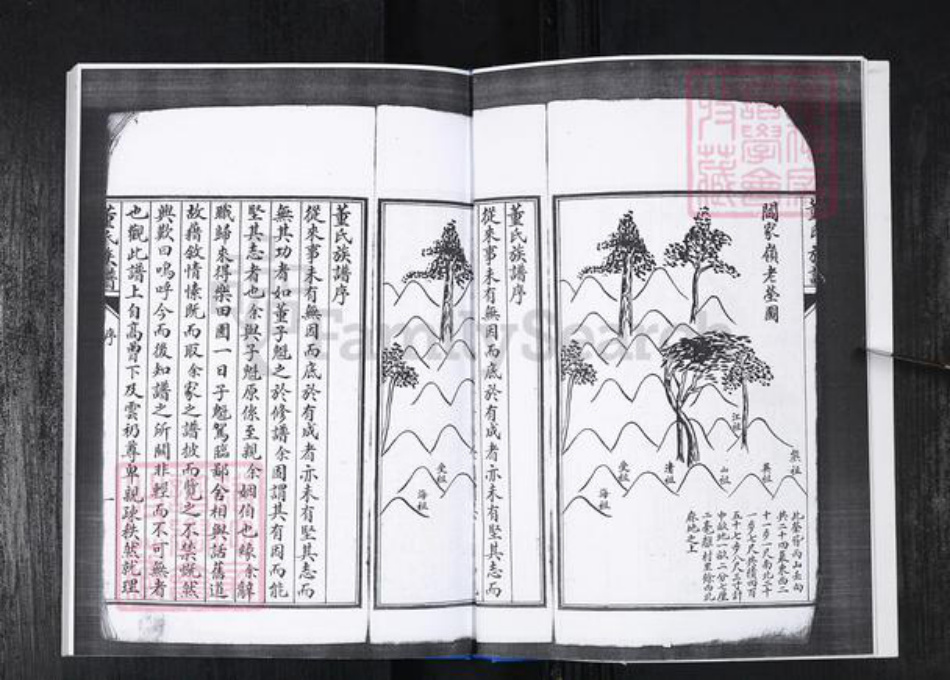 董氏族譜
閻家嶺老塋圖
江祖
熙祖
英祖
山祖
清祖
愛祖
海祖
此塋葬丙山壬向
共二十四墓東西二
十一步一尺南北二十
一步七尺共積四百
五十七步八尺三寸計
中畝地一畝二分七厘
二毫離村里餘西北
麻地之上
董氏族譜序
從來事未有無因而底於有成者亦未有堅其志而
愛祖
海祖
董氏族譜序
從來事未有無因而底於有成者亦未有堅其志而
無其功者如董子魁之於修譜余固謂其有因而能
堅其志者也余與子魁原係至親余姻伯也緣余解
職歸來得樂田園一日子魁駕臨鄙舍相與話舊道
故藉敘情愫既而取余家之譜披而覽之不禁慨然
興歎曰嗚呼今而後知譜之所關非輕而不可無者
也觀此譜上自高曾下及雲礽尊卑親疎秩然就理
董氏族譜
序
一
FamilySearch